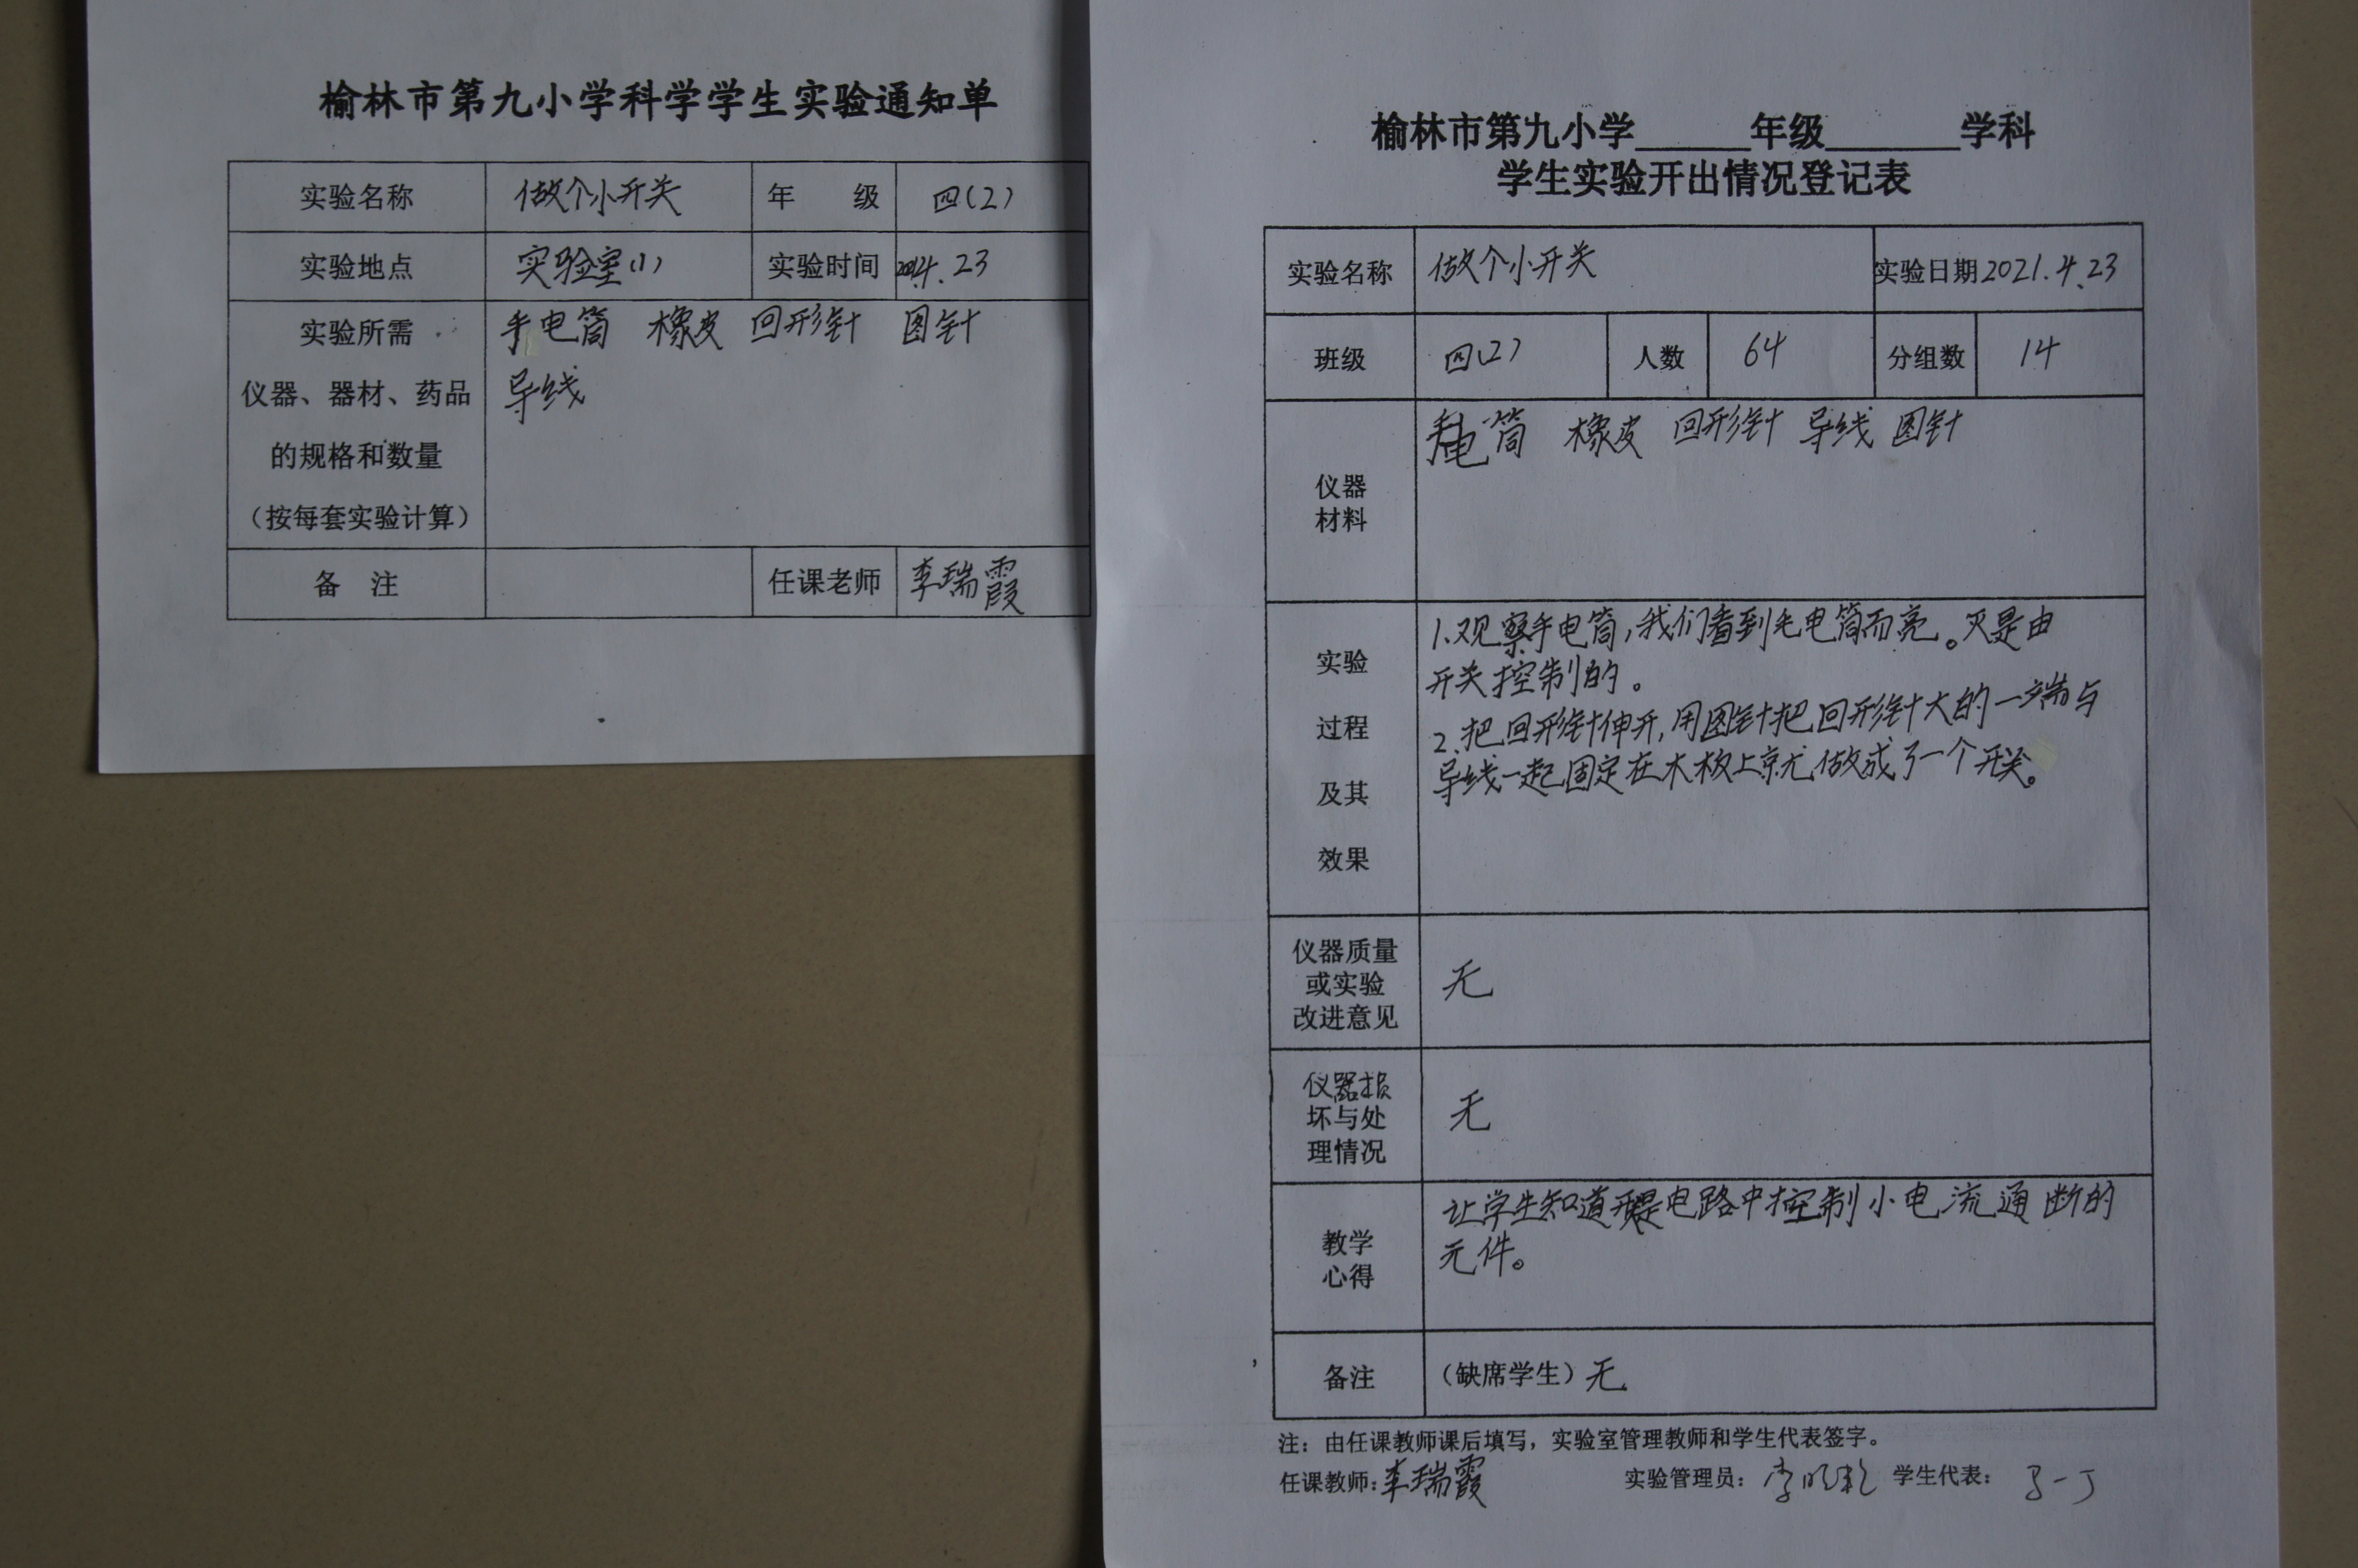 榆林市第九小学科学学生实验通知单
实验名称 做个小开关 年 级 四(2)
实验地点 实验室(1) 实验时间 4.23
实验所需 手电筒 橡皮 回形针 图钉
仪器、器材、药品 导线
的规格和数量
（按每套实验计算）
备 注 任课老师 李瑞霞
榆林市第九小学______年级_______学科
学生实验开出情况登记表
实验名称 做个小开关 实验日期 2021.4.23
班级 四(2) 人数 64 分组数 14
仪器
材料
手电筒 橡皮 回形针 导线 图钉
实验
过程
及其
效果
1.观察手电筒,我们看到毛电筒而亮。灭是由
开关控制的。
2.把回形针伸开,用图钉把回形针大的一端与
导线一起固定在木板上就做成了一个开关。
仪器质量
或实验
改进意见
无
仪器损
坏与处
理情况
无
教学
心得
让学生知道开关是电路中控制小电流通断的
元件。
备注 （缺席学生）无
注：由任课教师课后填写，实验室管理教师和学生代表签字。
任课教师:李瑞霞 实验管理员： 学生代表：